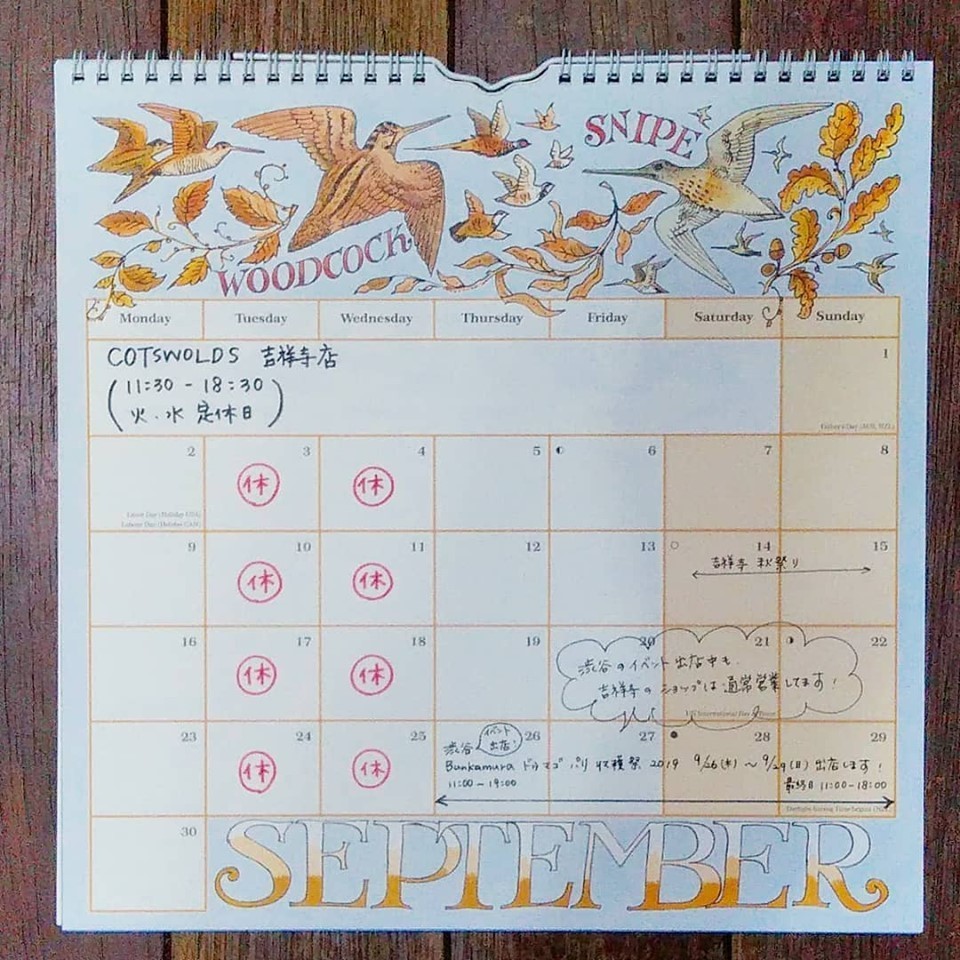 SNIPE
WOODCOCK
Monday Tuesday Wednesday Thursday Friday Saturday Sunday
COTSWOLDS 吉祥寺店
(11:30 - 18:30)
火・水 定休日
1
Father's Day (AUS, NZL)
2 3 4 5 6 7 8
休 休
Labor Day (Holiday USA)
Labour Day (Holiday CAN)
9 10 11 12 13 14 15
休 休
吉祥寺 秋祭り
16 17 18 19 20 21 22
休 休
渋谷のイベント出店中も、
吉祥寺のショップは通常営業してます!
UN International Day of Peace
23 24 25 26 27 28 29
休 休
渋谷 イベント出店!
Bunkamura ドゥマゴ パリ 収穫祭 2019 9/26(木)〜9/29(日)出店します!
11:00 - 19:00
最終日 11:00-18:00
Daylight Saving Time begins (NZL)
30
SEPTEMBER